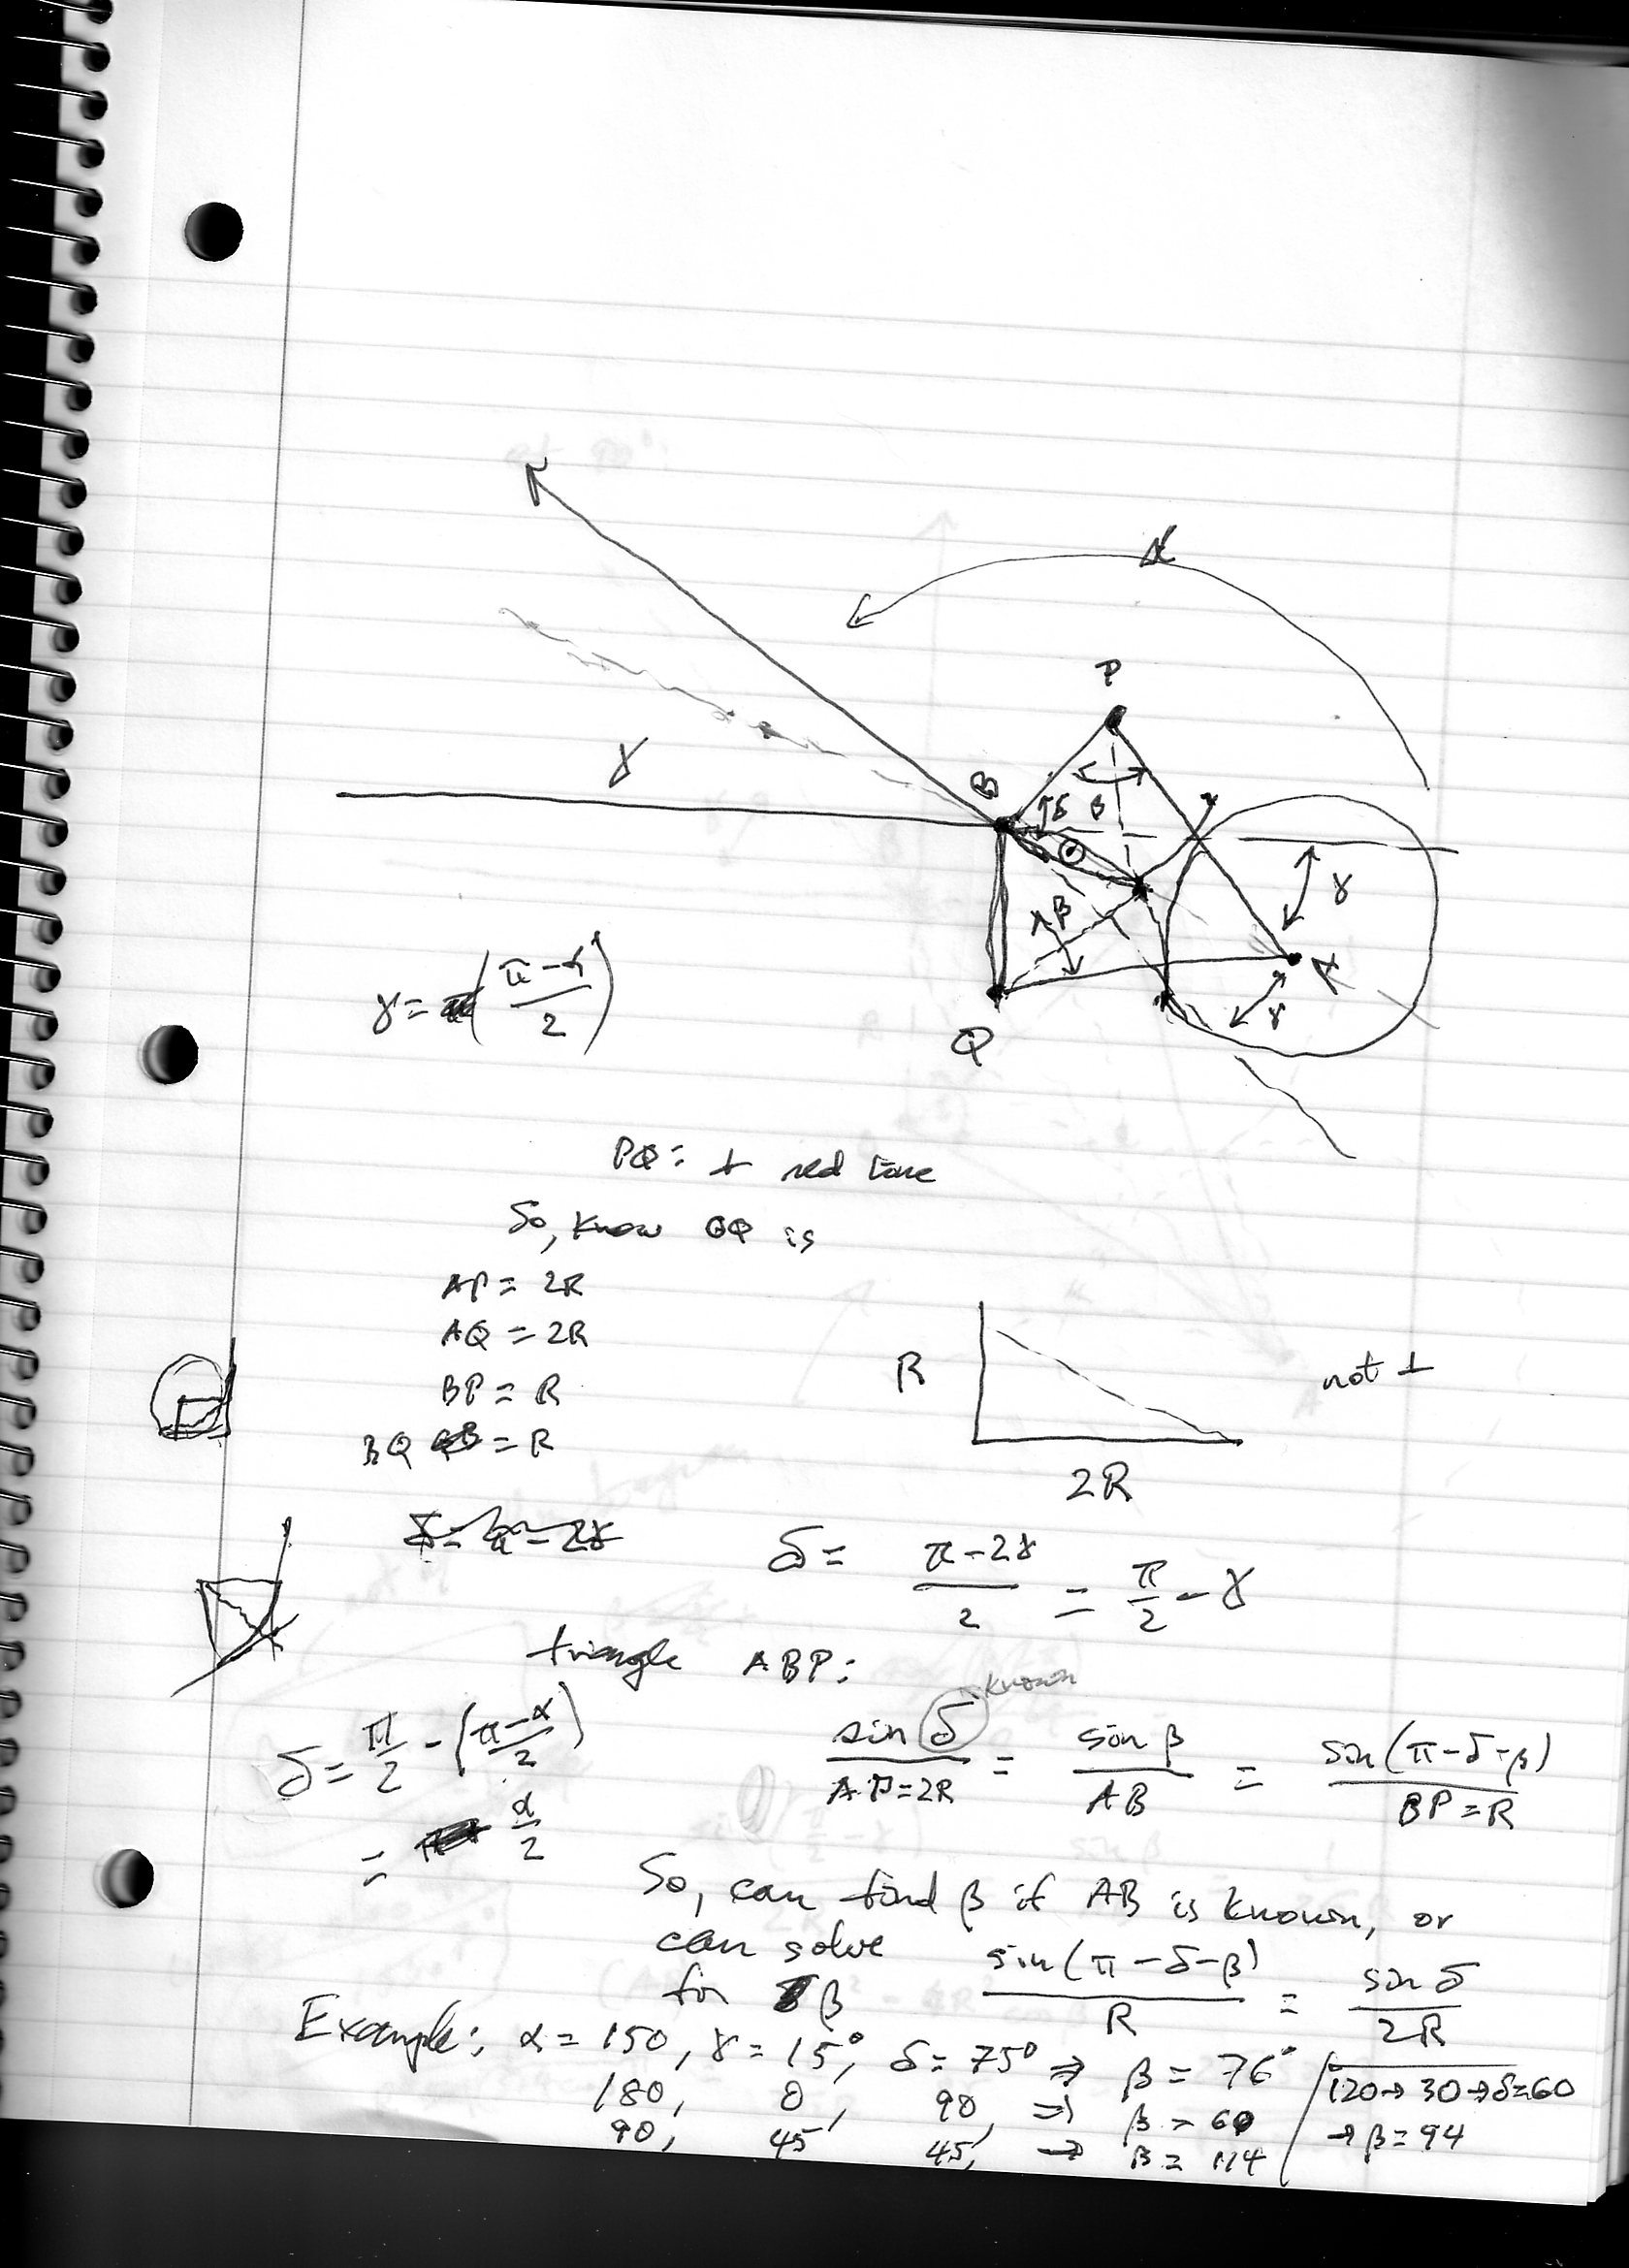 α
P
γ
B
δ β
γ
β
A
γ
γ = (π-α / 2)
Q
PQ = ⊥ red line
So, know BQ is
AP = 2R
AQ = 2R
BP = R
BQ = R
R
not ⊥
2R
δ = π-2γ / 2 = π/2 - γ
triangle ABP:
known
δ = π/2 - (π-α / 2)
= α/2
sin δ / AP=2R = sin β / AB = sin(π-δ-β) / BP=R
So, can find β if AB is known, or
can solve
for β
sin(π-δ-β) / R = sin δ / 2R
Example: α = 150, γ = 15°, δ = 75° ⇒ β = 76°
180, 0, 90, ⇒ β = 60
90, 45, 45, → β = 114
120→30→δ=60
→ β = 94